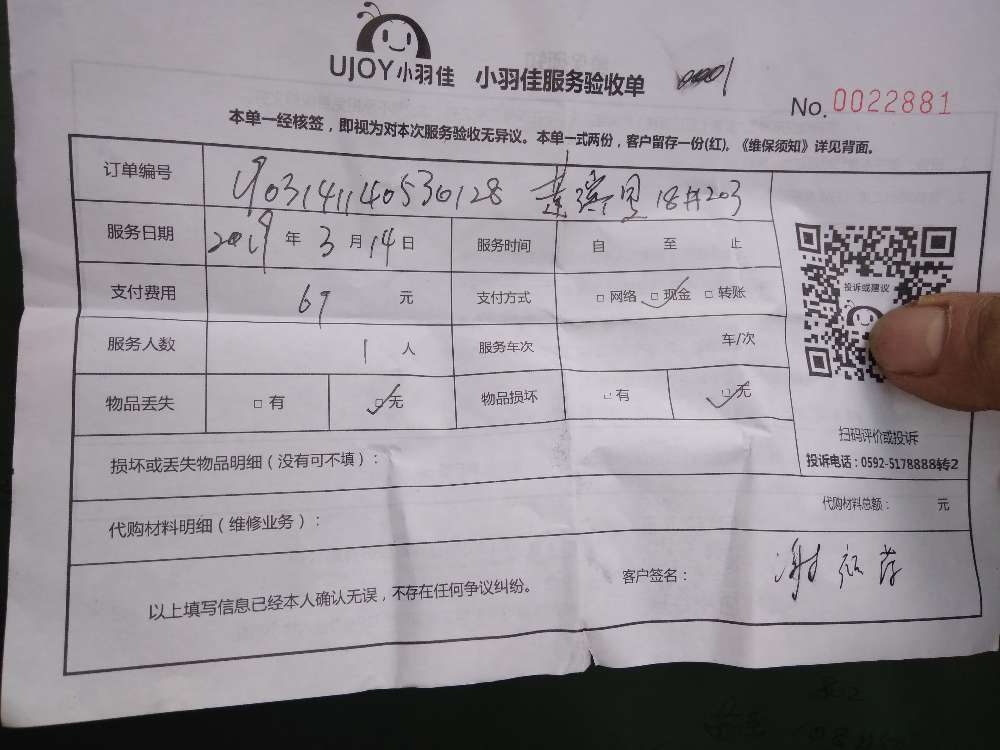 UJOY小羽佳 小羽佳服务验收单 0001
No. 0022881
本单一经核签，即视为对本次服务验收无异议。本单一式两份，客户留存一份(红)。《维保须知》详见背面。
订单编号 1903141140530128 18#203
服务日期 2019 年 3 月 14 日 服务时间 自 至 止
投诉或建议
支付费用 69 元 支付方式 □ 网络 □ 现金 □ 转账
服务人数 1 人 服务车次 车/次
物品丢失 □ 有 □ 无 物品损坏 □ 有 □ 无
扫码评价或投诉
投诉电话：0592-5178888转2
损坏或丢失物品明细（没有可不填）：
代购材料明细（维修业务）： 代购材料总额： 元
以上填写信息已经本人确认无误，不存在任何争议纠纷。 客户签名： 谢